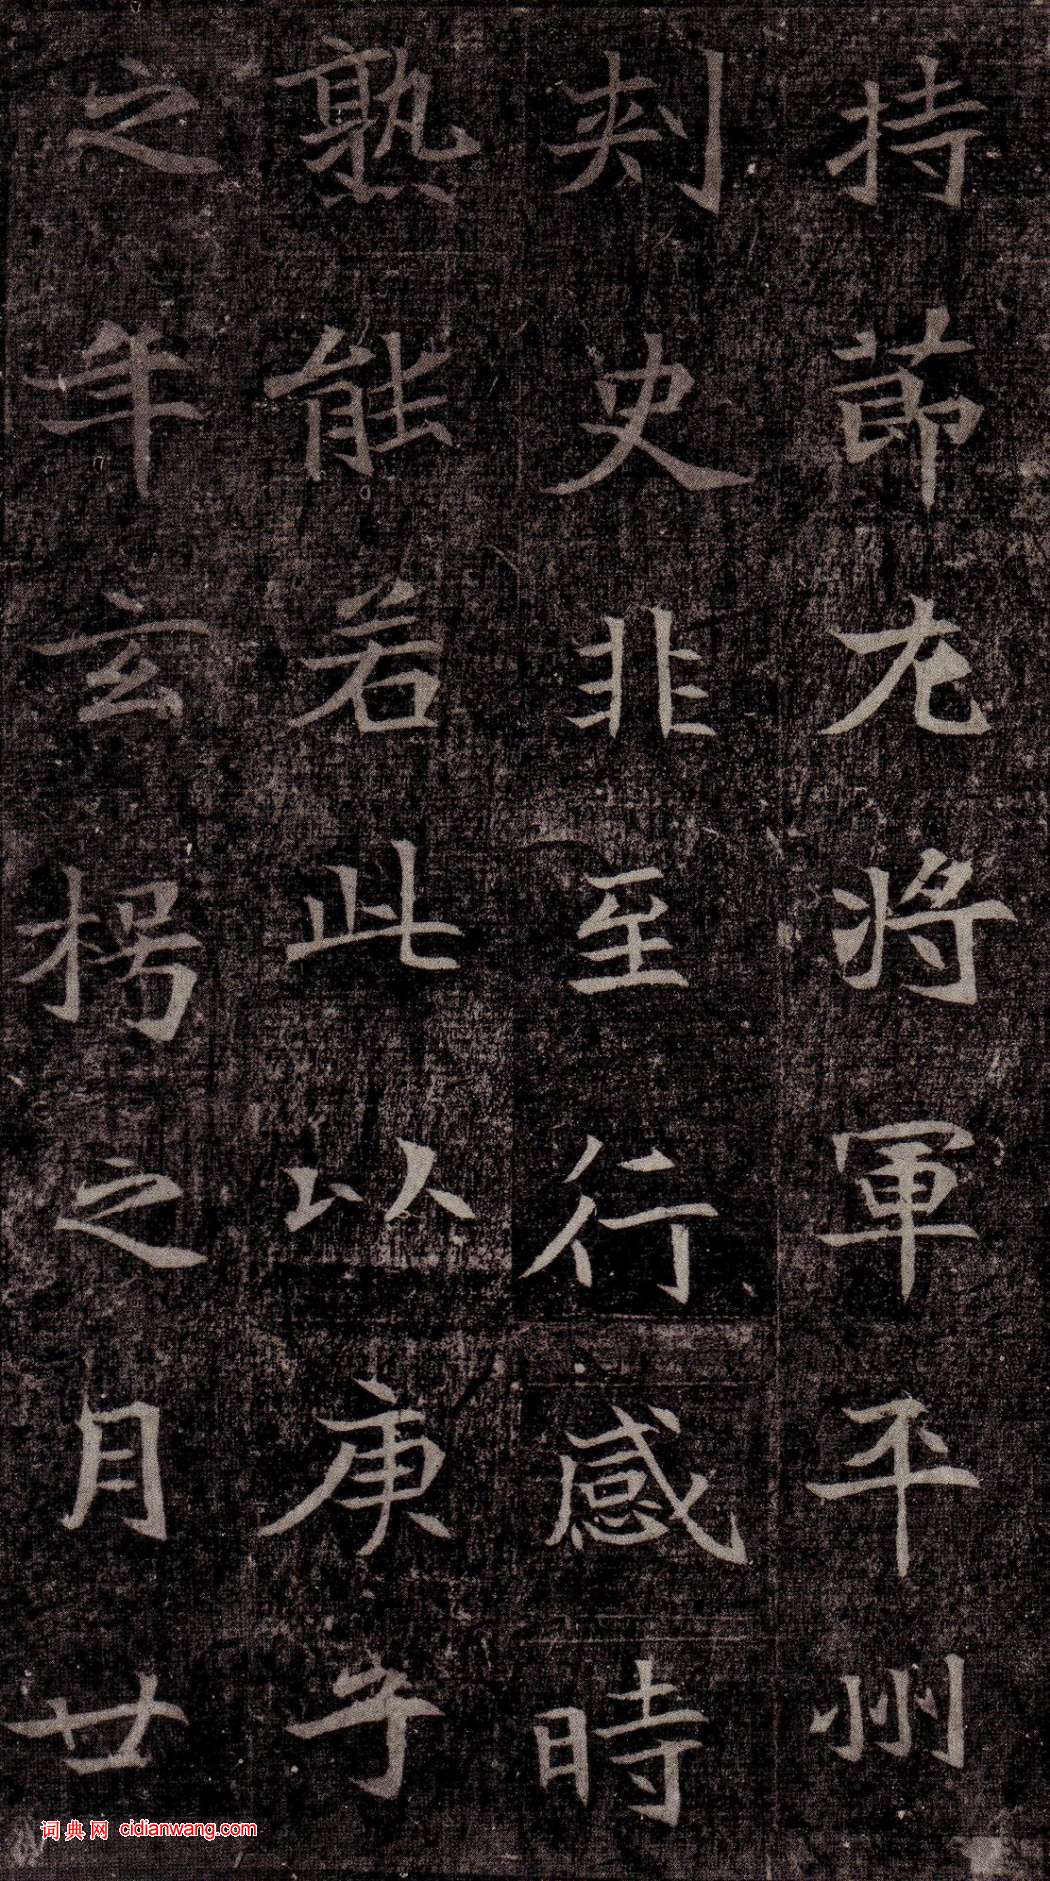 持節龙將軍平州
刾史非至行感時
熟能若此以庚午
之年玄枴之月廿
词典网 cidianwang.com